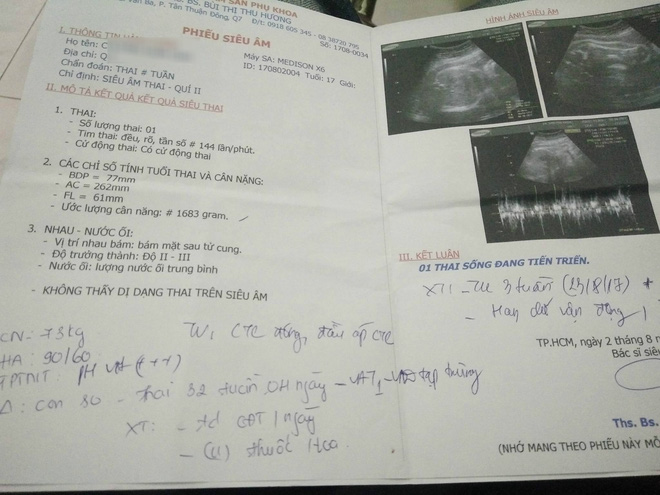 SẢN PHỤ KHOA
BS. BÙI THỊ THU HƯƠNG
P. Tân Thuận Đông, Q7 Đ/t: 0918 605 345 - 08 38720 795
PHIẾU SIÊU ÂM
Số: 1708-0034
I. THÔNG TIN
Họ tên: C
Máy SA: MEDISON X6
Địa chỉ: Q
ID: 170802004 Tuổi: 17 Giới:
Chẩn đoán: THAI # TUẦN
Chỉ định: SIÊU ÂM THAI - QUÍ II
II. MÔ TẢ KẾT QUẢ KẾT QUẢ SIÊU THAI
1. THAI:
- Số lượng thai: 01
- Tim thai: đều, rõ, tần số # 144 lần/phút.
- Cử động thai: Có cử động thai
2. CÁC CHỈ SỐ TÍNH TUỔI THAI VÀ CÂN NẶNG:
- BDP = 77mm
- AC = 262mm
- FL = 61mm
- Ước lượng cân nặng: # 1683 gram.
3. NHAU - NƯỚC ỐI:
- Vị trí nhau bám: bám mặt sau tử cung.
- Độ trưởng thành: Độ II - III
- Nước ối: lượng nước ối trung bình
- KHÔNG THẤY DỊ DẠNG THAI TRÊN SIÊU ÂM
CN: 73kg
HA: 90/60
: con so - thai 32 tuần
XT: - td 1 ngày
- thuốc 1 toa.
HÌNH ẢNH SIÊU ÂM
III. KẾT LUẬN
01 THAI SỐNG ĐANG TIẾN TRIỂN.
3 tuần (23/8/17)
vận động
TP.HCM, ngày 2 tháng 8 n
Bác sĩ siê
Ths. Bs.
(NHỚ MANG THEO PHIẾU NÀY MỖ